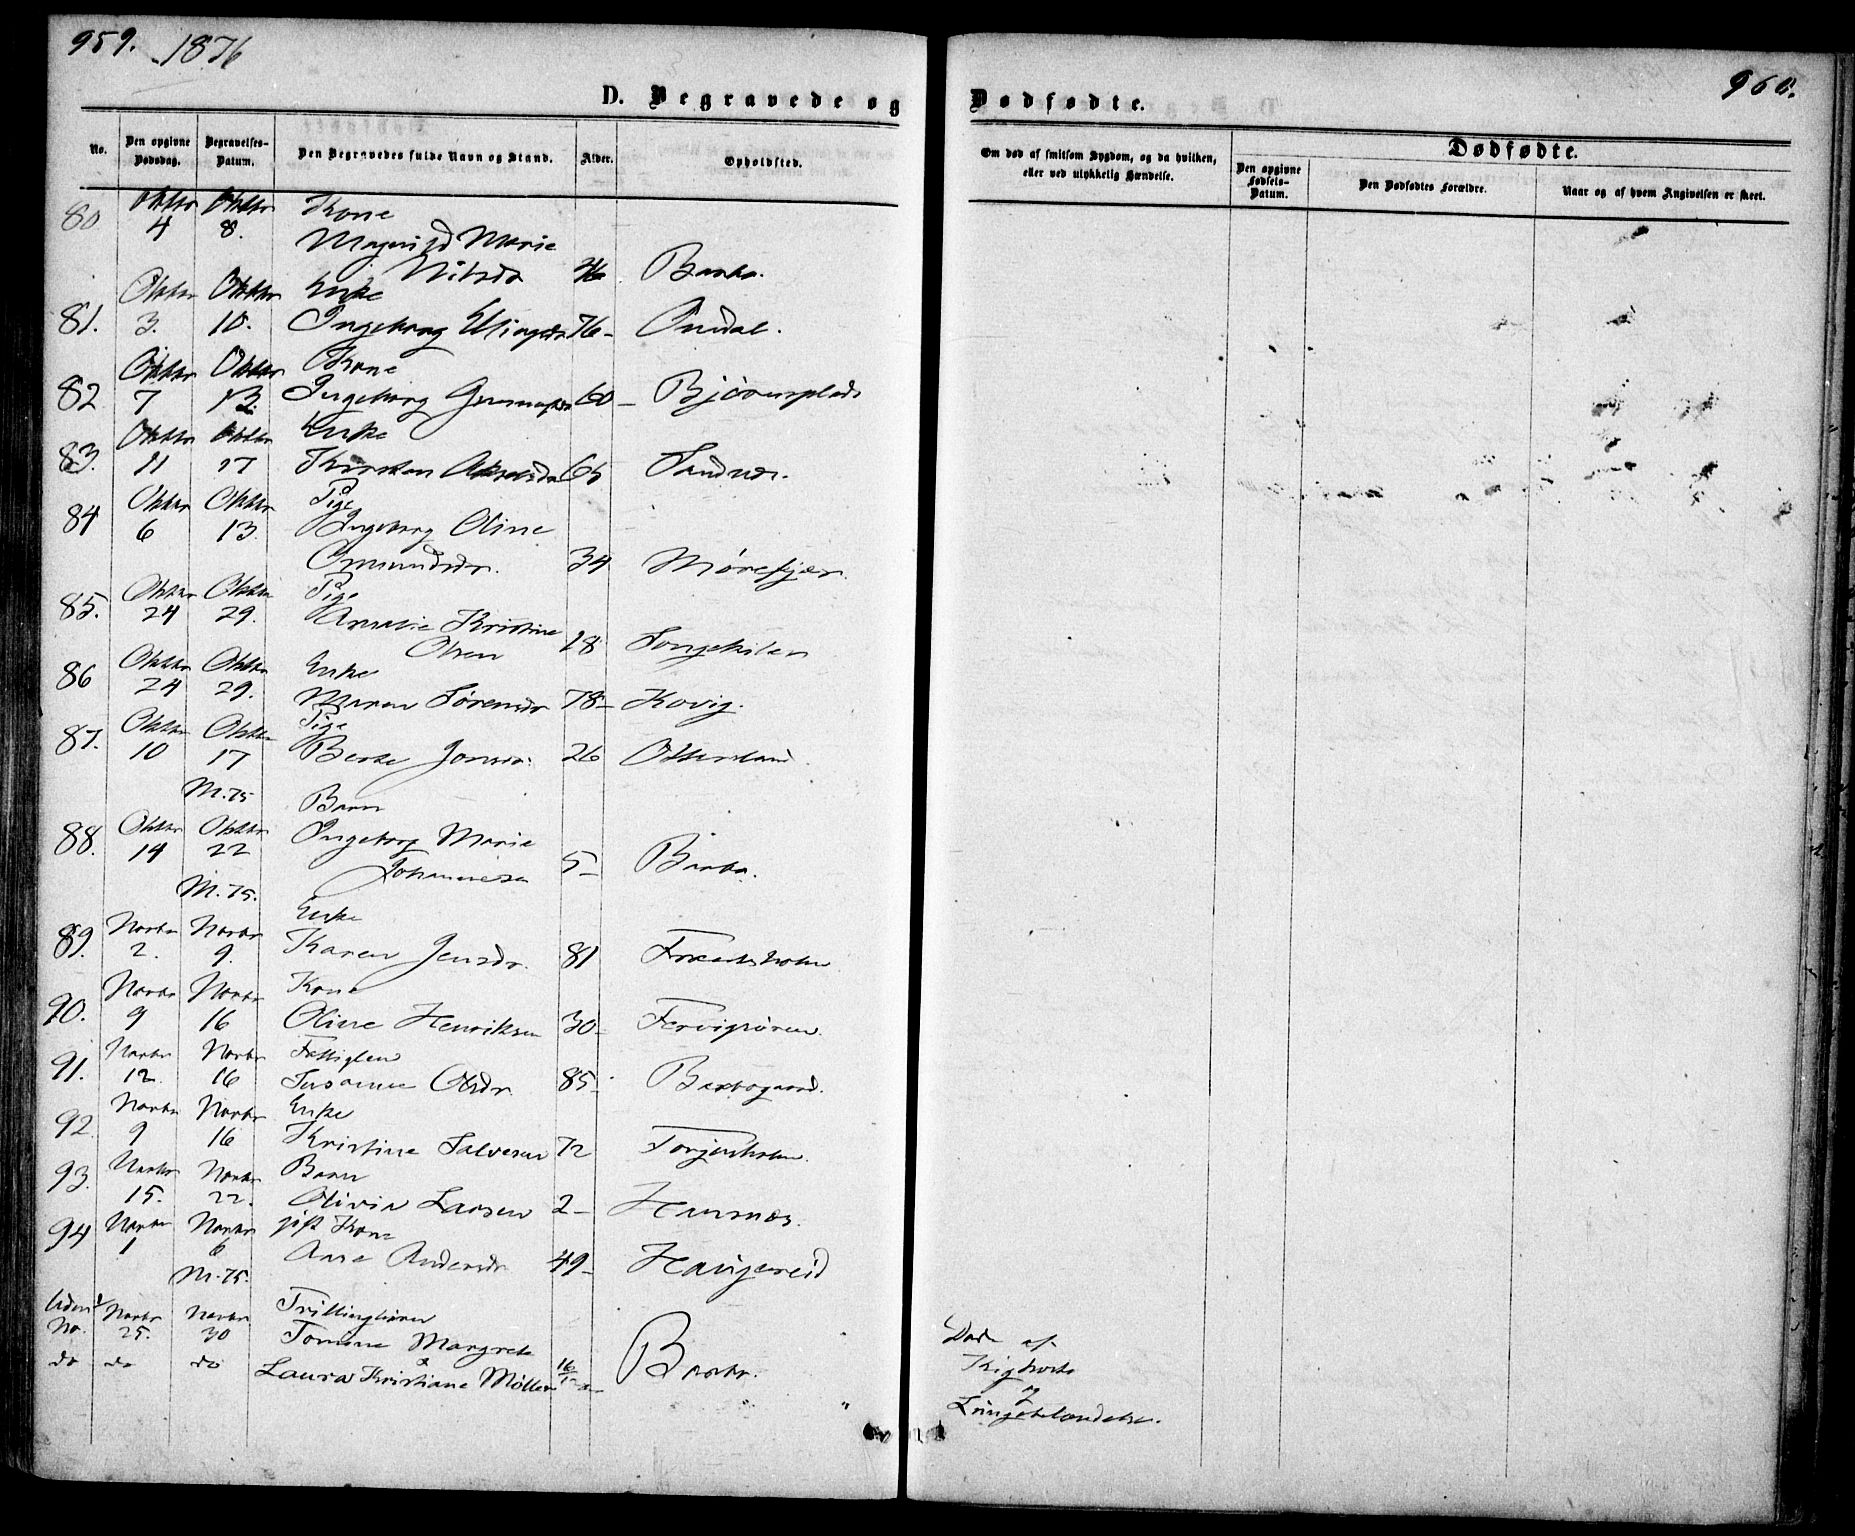 959. 1876
960.
D. Begravede og Dødfødte.
No.
Den opgivne Dødsdag.
Begravelses-Datum.
Den Begravedes fulde Navn og Stand.
Alder.
Opholdsted.
Om død af smitsom Sygdom, og da hvilken, eller ved ulykkelig Hændelse.
Dødfødte.
Den opgivne Fødsels-Datum.
Den Dødfødtes Forældre.
Naar og af hvem Angivelsen er skeet.
80. Oktbr 4 Oktbr 8. Kone
Marie
Nilsdr Barbo.
81. Oktbr 3. Oktbr 10. Enke
Ingeborg 76-
82 Oktbr 7 Oktbr 13. Kone
Ingeborg 60- Bjørnsplads
83. Oktbr 11 Oktbr 17 Enke
Kirsten 65 Sandnæs.
84 Oktbr 6 Oktbr 13. Pige
Ingeborg Oline
Omundsdr. 34 Mørefjær.
85. Oktbr 24 Oktbr 29. Pige
Amalie Kristine
Olsen 18 Songekilen
86 Oktbr 24 Oktbr 29. Enke
Maren Sørensdr 78- Kovig.
87. Oktbr 10 Oktbr 17 Pige
Berte Jonsdr. 26 Otterstand
M.75 Barn
88. Oktbr 14 Oktbr 22 Ingeborg Marie
Johannesen 5- Barbo.
M.75. Enke
89. Novbr 2. Novbr 9. Karen Jensdr. 81
90. Novbr 9 Novbr 16 Kone
Oline Henriksen 30-
91. Novbr 12. Novbr 16 Fattiglem
Susanne Olsdr 85- Barbogaard.
92. Novbr 9 Novbr 16 Enke
Kristine Salvesen 72 Torjusholm.
93. Novbr 15. Novbr 22. Barn
Olivia Larsen 2-
94 Novbr 1 Novbr 6 gift Kone
Anne Andersdr 49- Haugereid
M.75.
Uden No. Novbr 25. Novbr 30 Trillingbørn
Tomine Margrete
&
do do do Laura Kristiane Møller Barbo.
Døde af
Kighoste
og
Lungebetændelse.